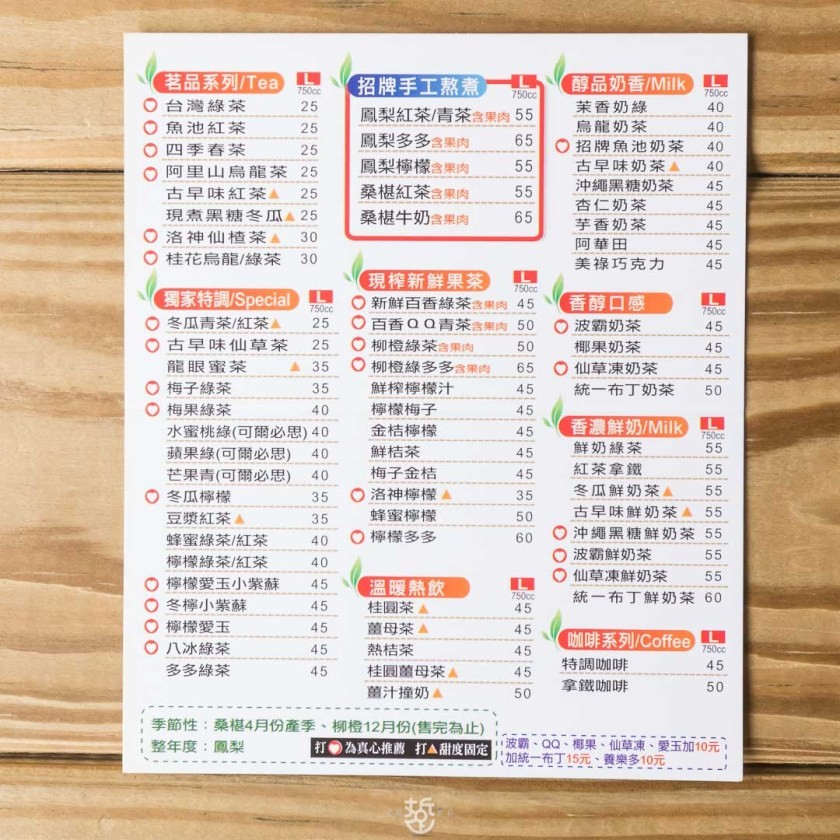 茗品系列/Tea L 750cc
台灣綠茶 25
魚池紅茶 25
四季春茶 25
阿里山烏龍茶 25
古早味紅茶▲ 25
現煮黑糖冬瓜▲ 25
洛神仙楂茶▲ 30
桂花烏龍/綠茶 30
獨家特調/Special L 750cc
冬瓜青茶/紅茶▲ 25
古早味仙草茶 25
龍眼蜜茶 ▲ 35
梅子綠茶 35
梅果綠茶 40
水蜜桃綠(可爾必思) 40
蘋果綠(可爾必思) 40
芒果青(可爾必思) 40
冬瓜檸檬 35
豆漿紅茶▲ 35
蜂蜜綠茶/紅茶 40
檸檬綠茶/紅茶 40
檸檬愛玉小紫蘇 45
冬檸小紫蘇 45
檸檬愛玉 45
八冰綠茶 45
多多綠茶 45
招牌手工熬煮 L 750cc
鳳梨紅茶/青茶含果肉 55
鳳梨多多含果肉 65
鳳梨檸檬含果肉 55
桑椹紅茶含果肉 55
桑椹牛奶含果肉 65
現榨新鮮果茶 L 750cc
新鮮百香綠茶含果肉 45
百香QQ青茶含果肉 50
柳橙綠茶含果肉 50
柳橙綠多多含果肉 65
鮮榨檸檬汁 45
檸檬梅子 45
金桔檸檬 45
鮮桔茶 45
梅子金桔 45
洛神檸檬▲ 35
蜂蜜檸檬 50
檸檬多多 60
溫暖熱飲 L 750cc
桂圓茶▲ 45
薑母茶▲ 45
熱桔茶 45
桂圓薑母茶▲ 45
薑汁撞奶▲ 50
醇品奶香/Milk L 750cc
茉香奶綠 40
烏龍奶茶 40
招牌魚池奶茶 40
古早味奶茶▲ 40
沖繩黑糖奶茶 45
杏仁奶茶 45
芋香奶茶 45
阿華田 45
美祿巧克力 45
香醇口感 L 750cc
波霸奶茶 45
椰果奶茶 45
仙草凍奶茶 45
統一布丁奶茶 50
香濃鮮奶/Milk L 750cc
鮮奶綠茶 55
紅茶拿鐵 55
冬瓜鮮奶茶▲ 55
古早味鮮奶茶▲ 55
沖繩黑糖鮮奶茶 55
波霸鮮奶茶 55
仙草凍鮮奶茶 55
統一布丁鮮奶茶 60
咖啡系列/Coffee L 750cc
特調咖啡 45
拿鐵咖啡 50
季節性：桑椹4月份產季、柳橙12月份(售完為止)
整年度：鳳梨
打 為真心推薦 打▲甜度固定
波霸、QQ、椰果、仙草凍、愛玉加10元
加統一布丁15元、養樂多10元